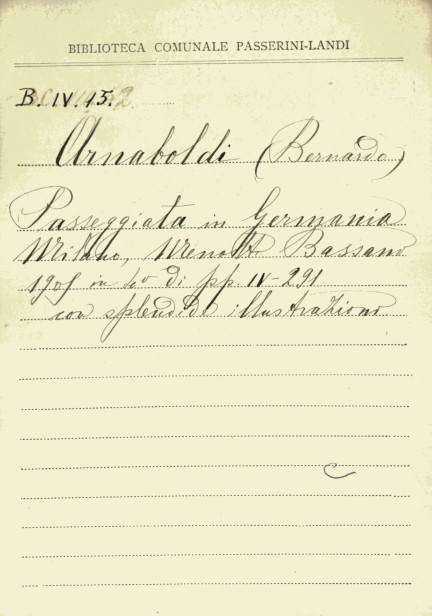 BIBLIOTECA COMUNALE PASSERINI-LANDI
B. IV. 15.
Arnaboldi (Bernardo)
Passeggiata in Germania
Milano, Menotti Bassani
in di pp. IV-291
con splendide illustrazioni